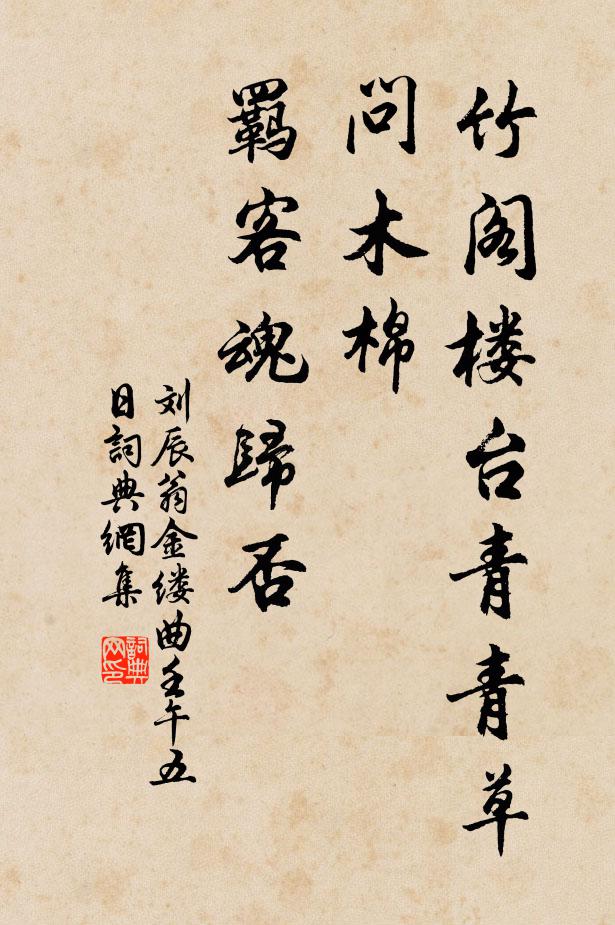 竹阁楼台青青草
问木棉
羁客魂歸否
刘辰翁金缕曲壬午五
日詞典網集
詞典网印